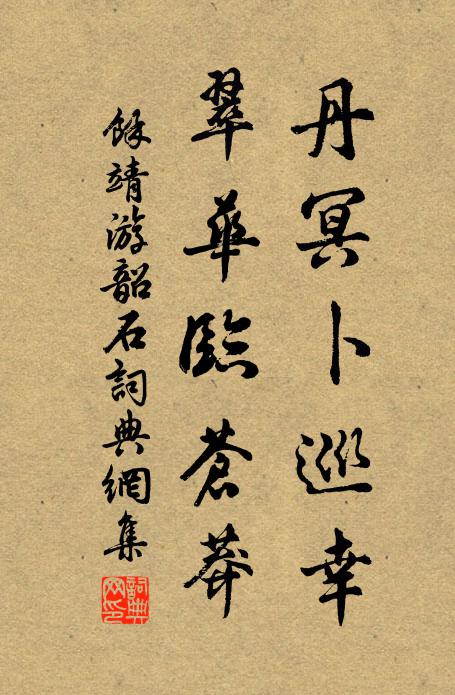 丹冥卜巡幸
翠華臨蒼莽
餘靖游韶石詞典網集
詞典网印